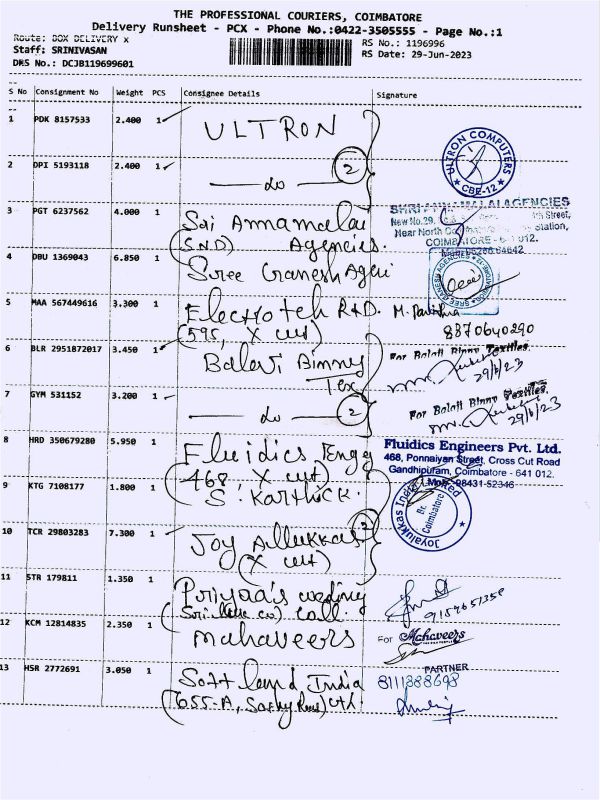 THE PROFESSIONAL COURIERS, COIMBATORE
Delivery Runsheet - PCX - Phone No.:0422-3505555 - Page No.:1
Route: BOX DELIVERY x
RS No.: 1196996
Staff: SRINIVASAN
RS Date: 29-Jun-2023
DRS No.: DCJB119699601
S No Consignment No Weight PCS Consignee Details Signature
1 PDK 8157533 2.400 1 ULTRON
ULTRON COMPUTERS
CBE-12
2 DPI 5193118 2.400 1 do 2
3 PGT 6237562 4.000 1 Sri Annamalai
(SND) Agencies.
AGENCIES
New No.29, Street,
Near North Station,
COIMBATORE - 012.
4 DBU 1369043 6.850 1 Sree Ganesh Agen
SREE GANESH AGENCIES
5 MAA 567449616 3.300 1 Electrotek R&D.
(595, X cut)
8370640290
6 BLR 2951872017 3.450 1 Balaji Binny
Tex
For Balaji Binny Textiles.
29/6/23
7 GYM 531152 3.200 1 do 2
For Balaji Binny Textiles
29/6/23
8 HRD 350679280 5.950 1 Fluidics Engg
(468, X cut)
Fluidics Engineers Pvt. Ltd.
468, Ponnaiyan Street, Cross Cut Road
Gandhipuram, Coimbatore - 641 012.
Mob: 98431-52346
9 KTG 7108177 1.800 1 S. Karthick.
Joyalukkas India Limited
Br.
Coimbatore
10 TCR 29803283 7.300 1 Joy Allukkas 2
(X cut)
11 STR 179811 1.350 1 Priyaa's weding
call
9159651358
12 KCM 12814835 2.350 1 mahaveers
For Mahaveers
PARTNER
13 HSR 2772691 3.050 1 Soft land India
(655-A,
8111388698